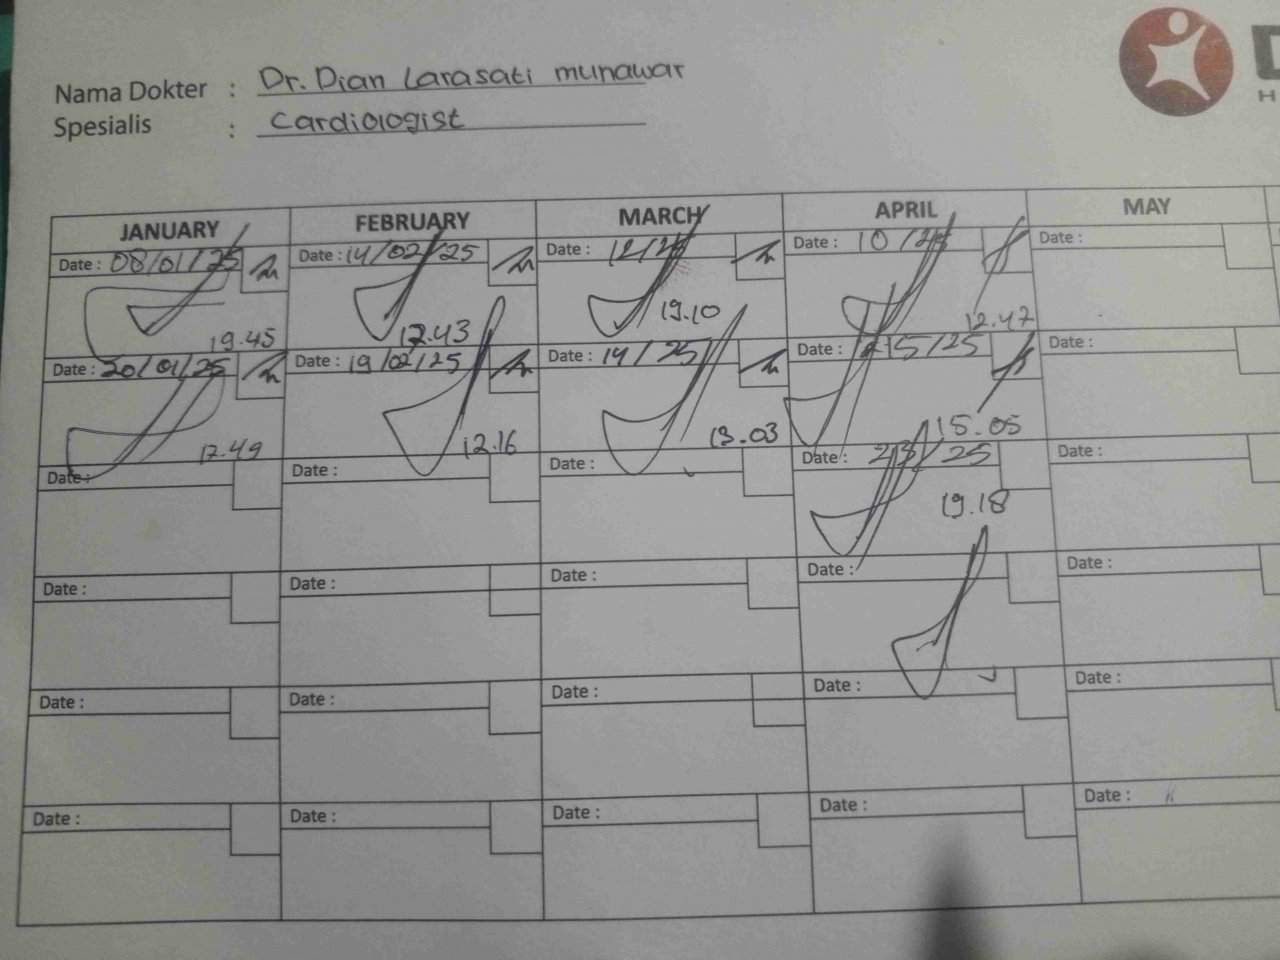 Nama Dokter : Dr. Dian Larasati munawar
Spesialis : Cardiologist
D
H
JANUARY FEBRUARY MARCH APRIL MAY
Date : 08/01/25 Date : 14/02/25 Date : 12/25 Date : 10/25 Date :
19.45 12.43 19.10 12.47
Date : 20/01/25 Date : 19/02/25 Date : 14/25 Date : 15/25 Date :
17.49 12.16 13.03 15.05
Date : Date : Date : Date : 23/25 Date :
19.18
Date : Date : Date : Date : Date :
Date : Date : Date : Date : Date :
Date : Date : Date : Date : Date :